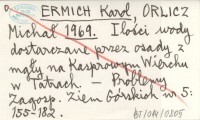 ERMICH Karol, ORLICZ
Michał 1969. Ilości wody
dostarczane przez osady z
mgły na Kasprowym Wierchu
w Tatrach. — Problemy
Zagosp. Ziem Górskich nr 5:
155-182.
BT/OM/0805